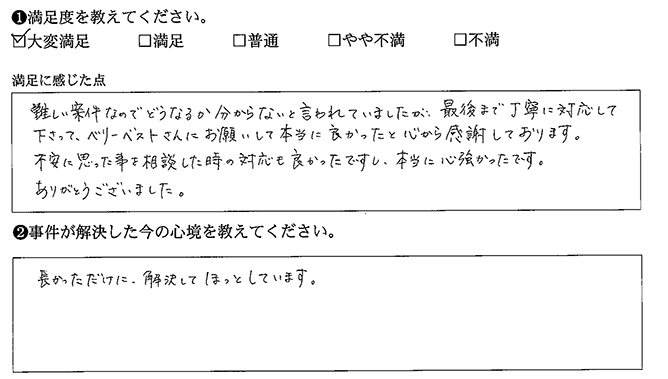 ❶満足度を教えてください。
☑大変満足 □満足 □普通 □やや不満 □不満
満足に感じた点
難しい案件なのでどうなるか分からないと言われていましたが、最後まで丁寧に対応して
下さって、ベリーベストさんにお願いして本当に良かったと心から感謝しております。
不安に思った事を相談した時の対応も良かったですし、本当に心強かったです。
ありがとうございました。
❷事件が解決した今の心境を教えてください。
長かっただけに、解決してほっとしています。